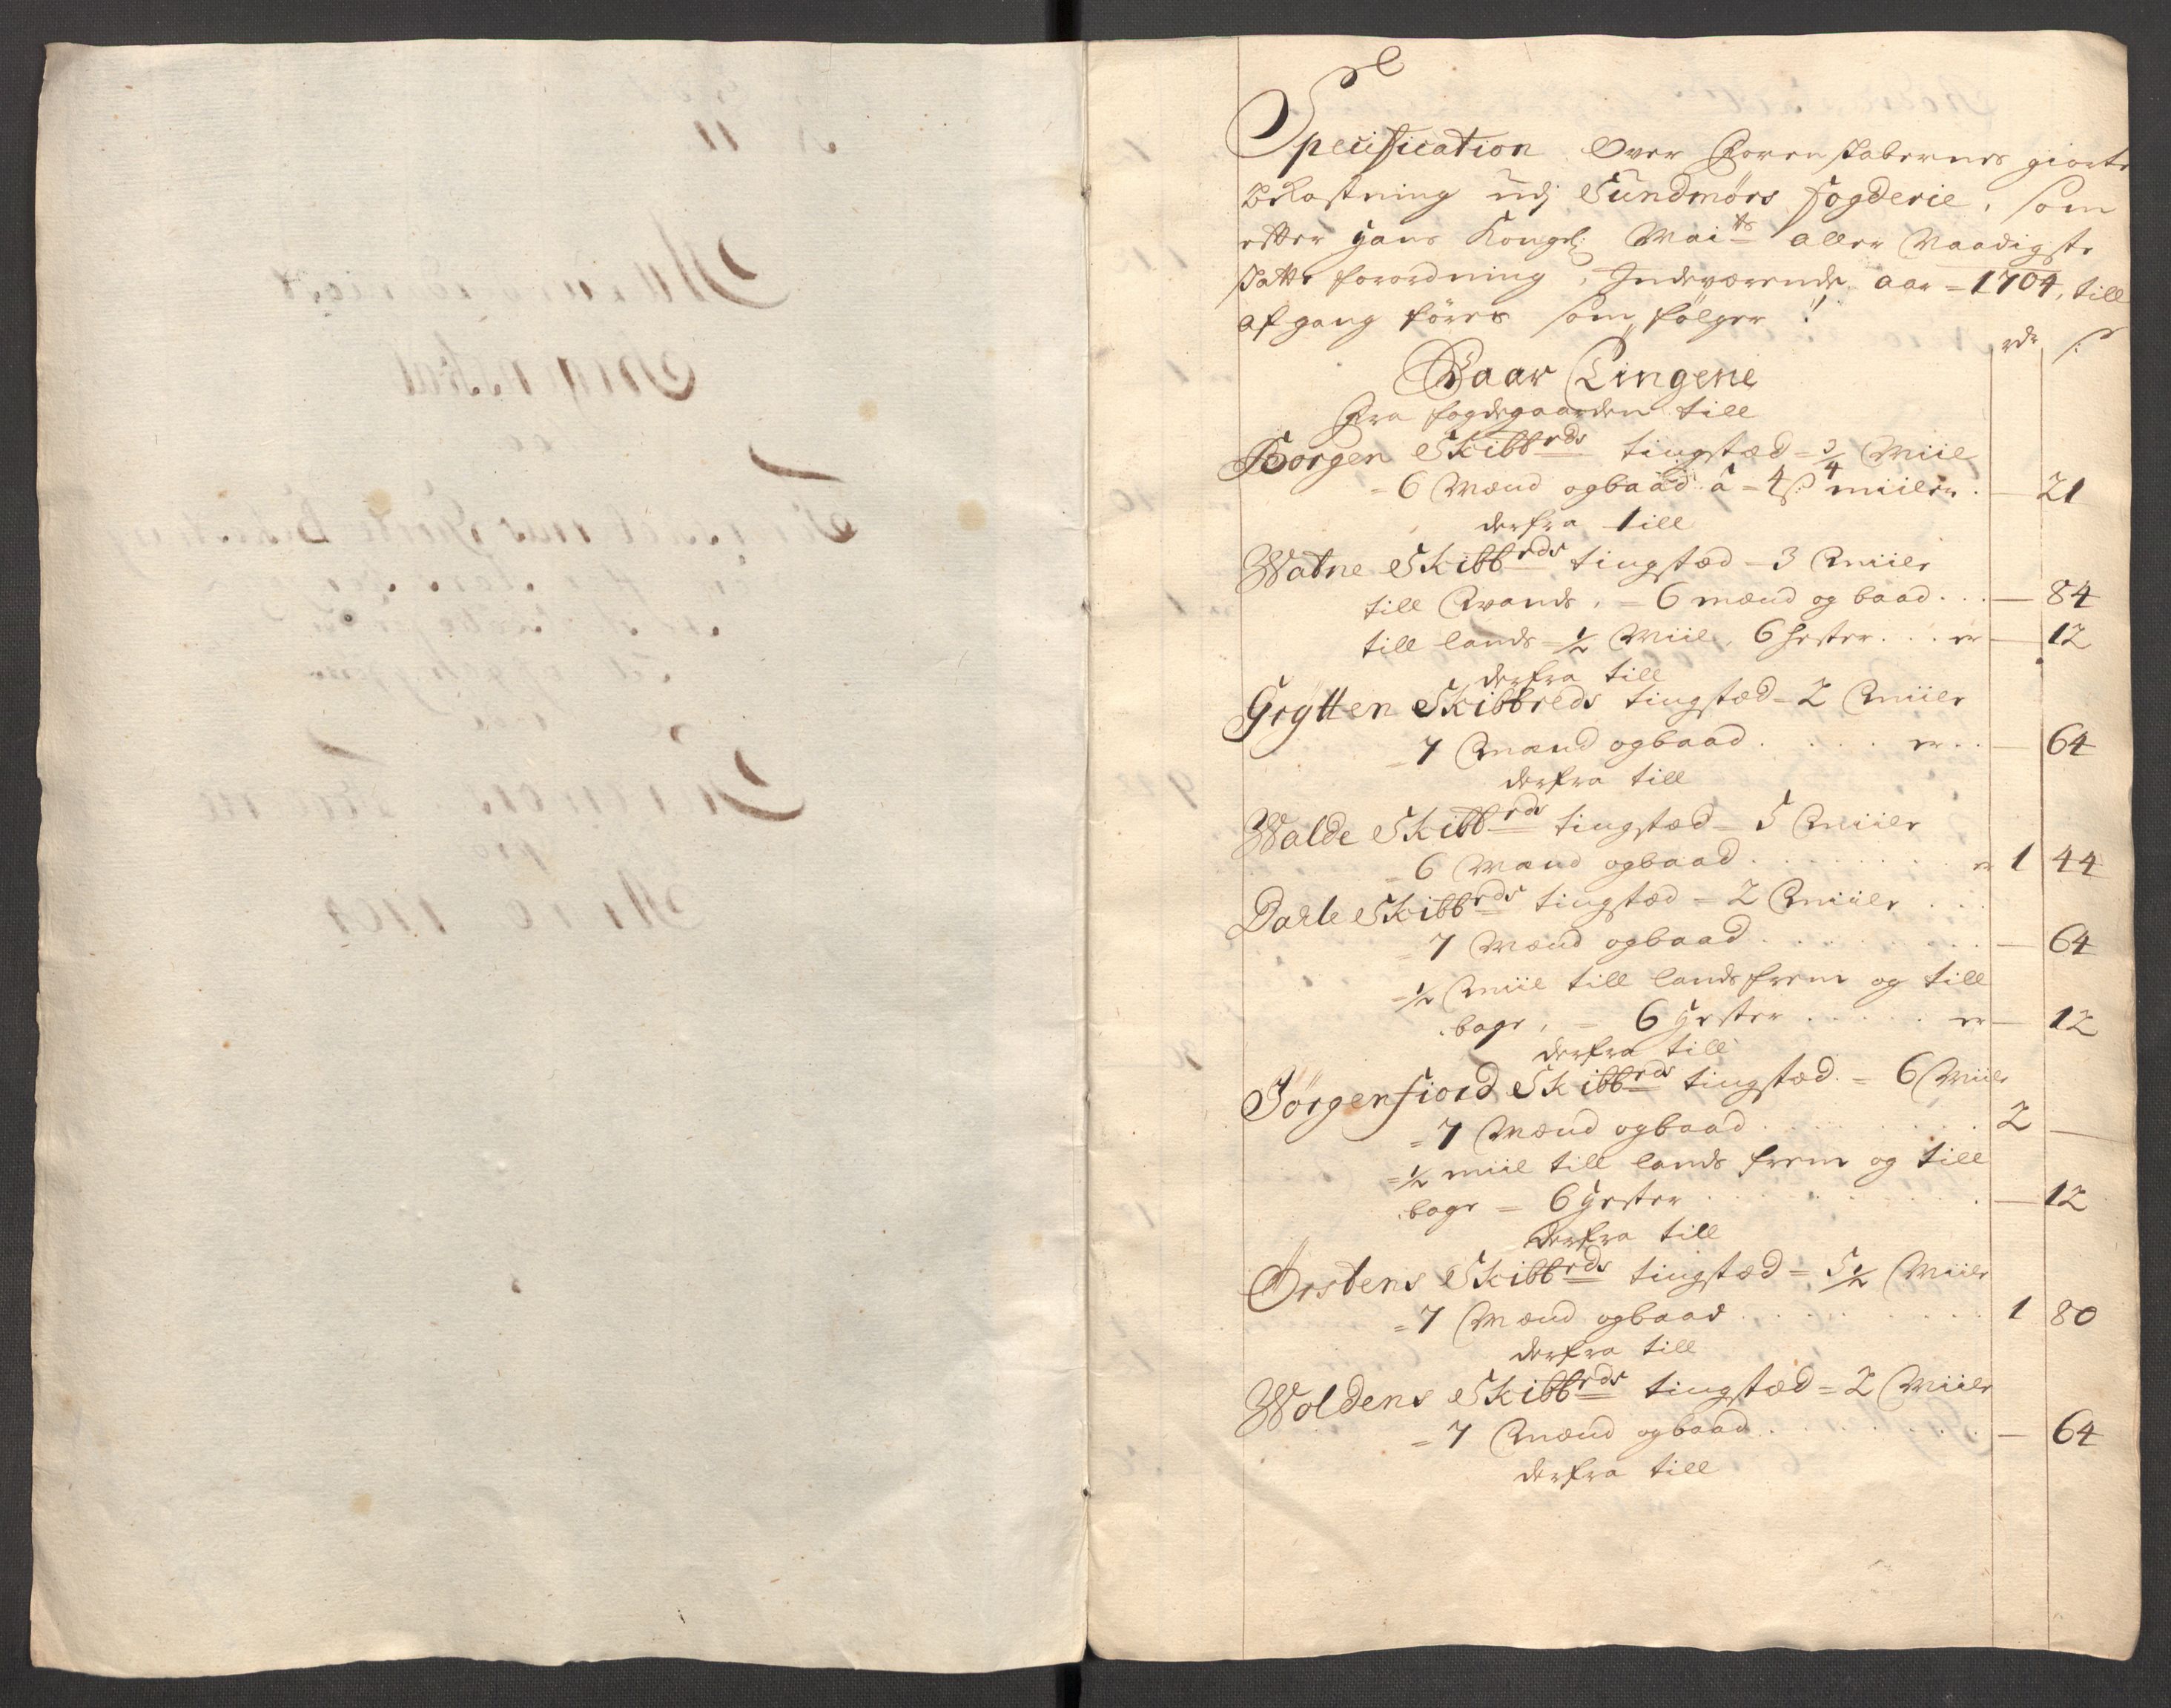 Specification Over Forenskabernes giorte
Bekostning udj Sundmørs fogderie, som
efter Hans Kongel: Mai<sup>ts</sup> Aller Naadigste
Skatte forordning, Indeværende aar = 1704, till
afgang føres som følger!
rdr ß
Vaar Tingene
Fra fogdegaarden till
Borgen Skibb<sup>rds</sup> tingstæd = 3/4 Miil
= 6 Mænd og baad â = 4 ß miilen . — 21
derfra till
Watne Skibb<sup>rds</sup> tingstæd – 3 Miile
till Wands, = 6 mænd og baad . . . — 84
till lands = 1/2 Miil, 6 hester . . . er — 12
derfra till
Grytten Skibbreds tingstæd – 2 Miile
= 7 Mænd og baad . . . . . er . . — 64
derfra till
Walde Skibb<sup>rds</sup> tingstæd – 5 Miile
= 6 Mænd og baad . . . . . . . . er 1 44
Dahle Skibb<sup>rds</sup> tingstæd = 2 Miile . . .
= 7 Mænd og baad . . . . . . . . — 64
= 1/2 Miil till lands frem og till
bage, = 6 Hester . . . . . er — 12
derfra till
Jörgenfiord Skibb<sup>rds</sup> tingstæd. = 6 Miile
= 7 Mænd og baad . . . . . . . . 2 —
= 1/2 miil till lands frem og till
bage = 6 Hester . . . . . . . . — 12
derfra till
Örstens Skibb<sup>rds</sup> tingstæd = 5 1/2 Miile
= 7 Mænd og baad . . . . . . . . 1 80
derfra till
Woldens Skibb<sup>rds</sup> tingstæd = 2 Miile
= 7 Mænd og baad . . . . . . . . — 64
derfra till